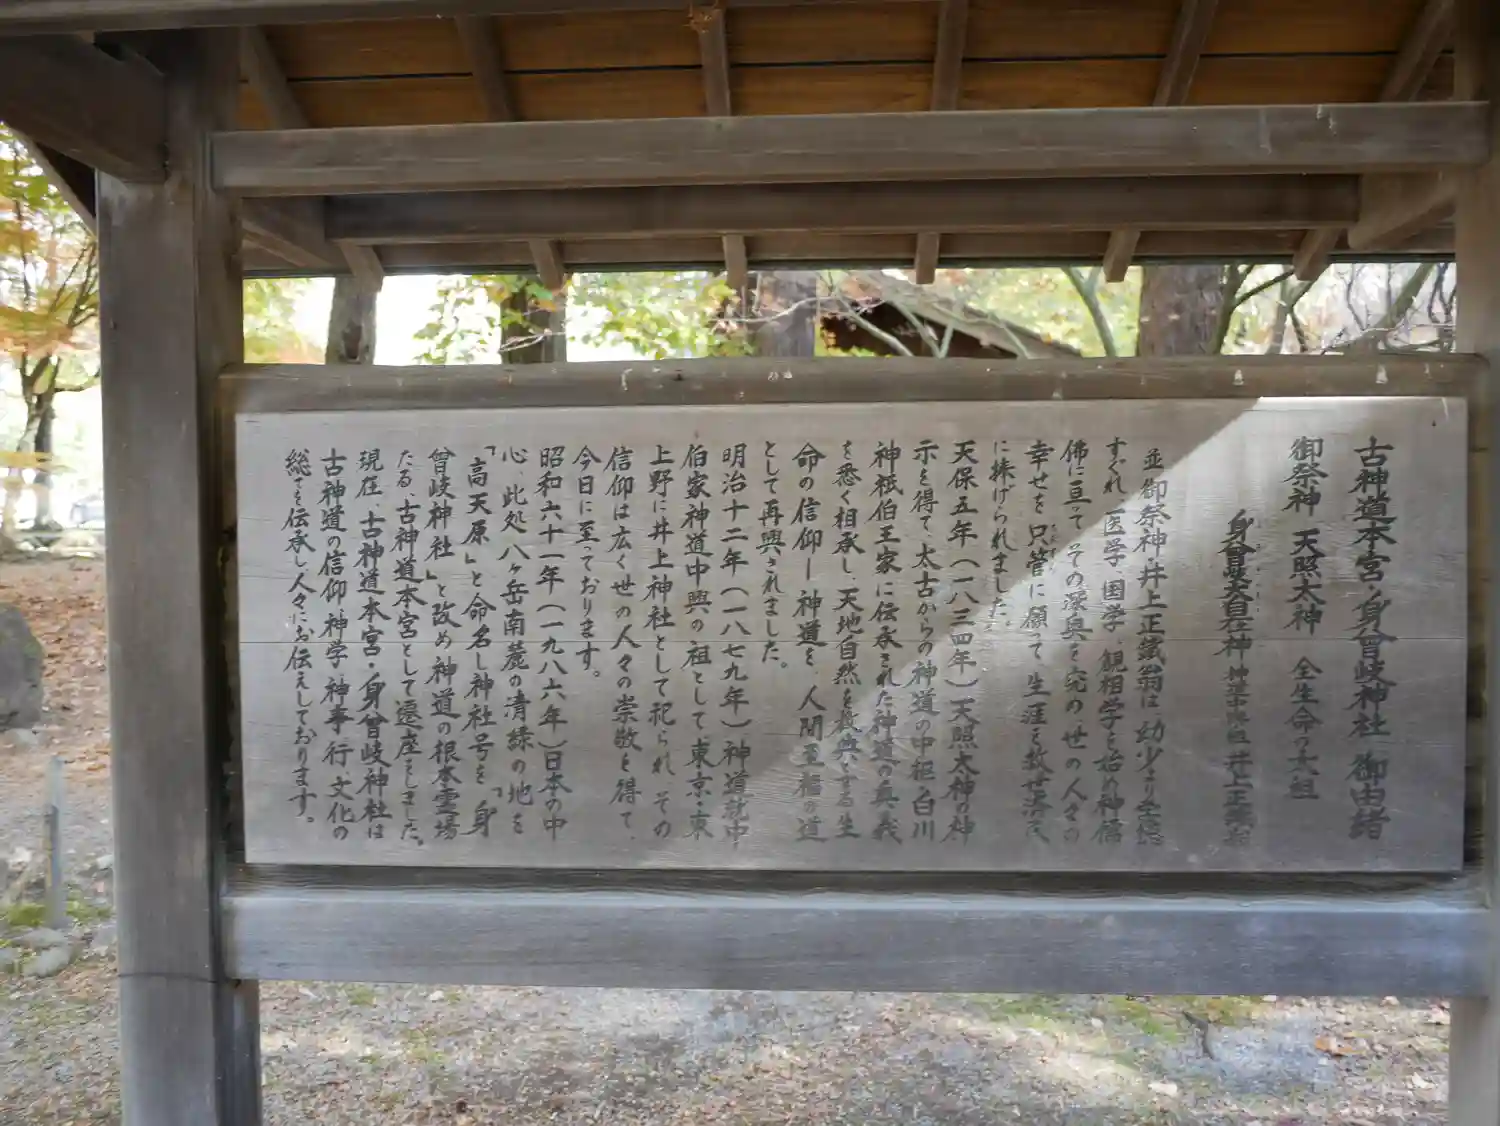 古神道本宮・身曾岐神社 御由緒
御祭神 天照太神 全生命の大祖
身曾岐大自在神 神道中興の祖 井上正鐵翁
並御祭神・井上正鐵翁は、幼少より至徳
すぐれ、医学、国学、観相学を始め神儒
佛に亘って、その深奥を究め、世の人々の
幸せを只管に願って、生涯を救世済民
に捧げられました。
天保五年(一八三四年)天照太神の神
示を得て、太古からの神道の中枢・白川
神祇伯王家に伝承された神道の真義
を悉く相承し、天地自然を教典とする生
命の信仰―神道を、人間至福の道
として再興されました。
明治十二年(一八七九年)神道就中
伯家神道中興の祖として、東京・東
上野に井上神社として祀られ、その
信仰は広く世の人々の崇敬を得て、
今日に至っております。
昭和六十一年(一九八六年)日本の中
心、此処八ヶ岳南麓の清緑の地を
「高天原」と命名し神社号を「身
曾岐神社」と改め神道の根本霊場
たる、古神道本宮として遷座をしました。
現在、古神道本宮・身曾岐神社は
古神道の信仰・神学・神事・行・文化の
総てを伝承し人々にお伝えしております。